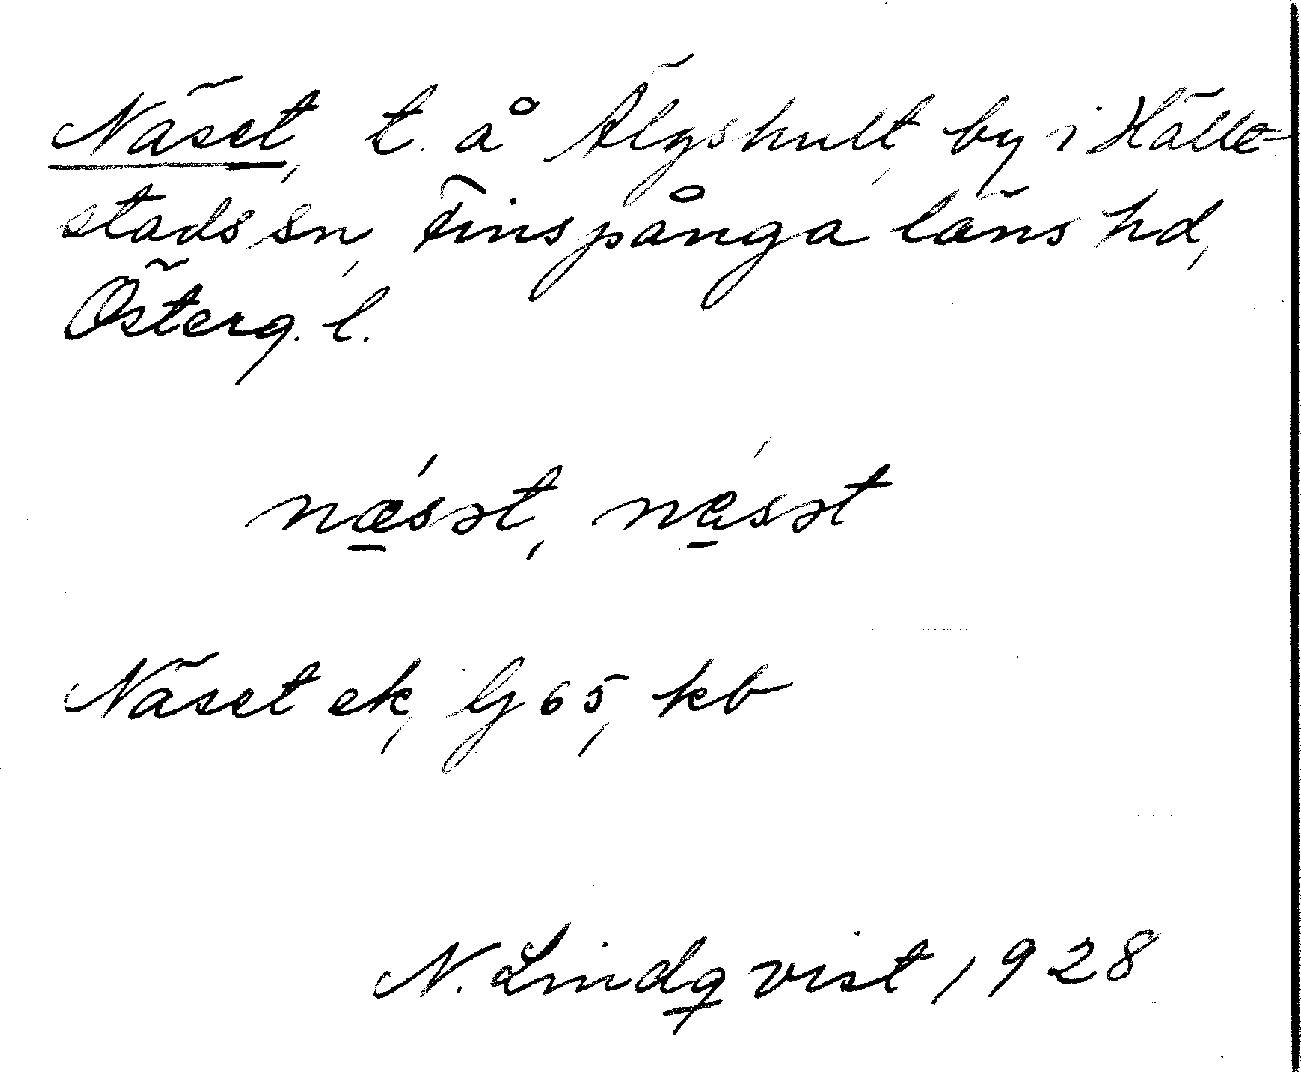 Näset, t. å Älgshult, by i Hälle-
stads sn, Finspånga läns hd,
Österg. l.
nǽ̱sət, ná̱sət
Näset ek, G 65, kb
N. Lindqvist, 1928